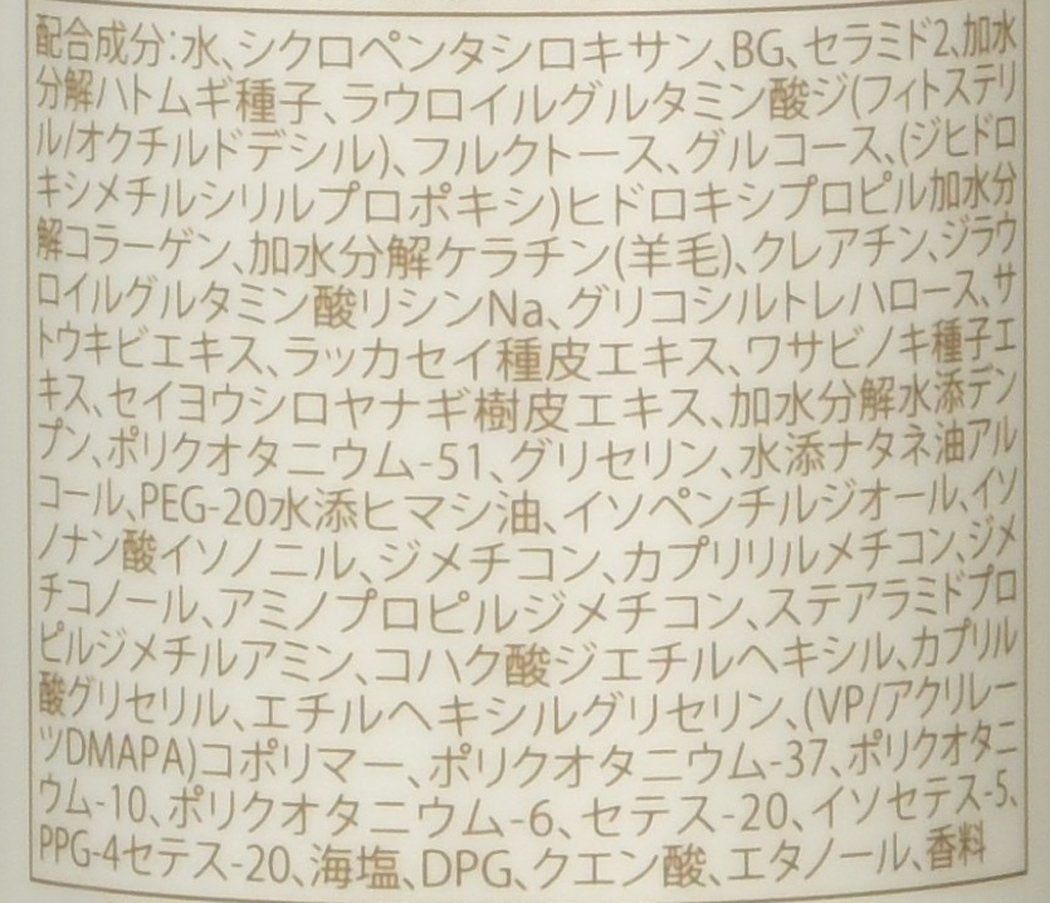 配合成分:水、シクロペンタシロキサン、BG、セラミド2、加水
分解ハトムギ種子、ラウロイルグルタミン酸ジ(フィトステリ
ル/オクチルドデシル)、フルクトース、グルコース、(ジヒドロ
キシメチルシリルプロポキシ)ヒドロキシプロピル加水分
解コラーゲン、加水分解ケラチン(羊毛)、クレアチン、ジラウ
ロイルグルタミン酸リシンNa、グリコシルトレハロース、サ
トウキビエキス、ラッカセイ種皮エキス、ワサビノキ種子エ
キス、セイヨウシロヤナギ樹皮エキス、加水分解水添デン
プン、ポリクオタニウム-51、グリセリン、水添ナタネ油アル
コール、PEG-20水添ヒマシ油、イソペンチルジオール、イソ
ノナン酸イソノニル、ジメチコン、カプリリルメチコン、ジメ
チコノール、アミノプロピルジメチコン、ステアラミドプロ
ピルジメチルアミン、コハク酸ジエチルヘキシル、カプリル
酸グリセリル、エチルヘキシルグリセリン、(VP/アクリレー
ツDMAPA)コポリマー、ポリクオタニウム-37、ポリクオタニ
ウム-10、ポリクオタニウム-6、セテス-20、イソセテス-5、
PPG-4セテス-20、海塩、DPG、クエン酸、エタノール、香料